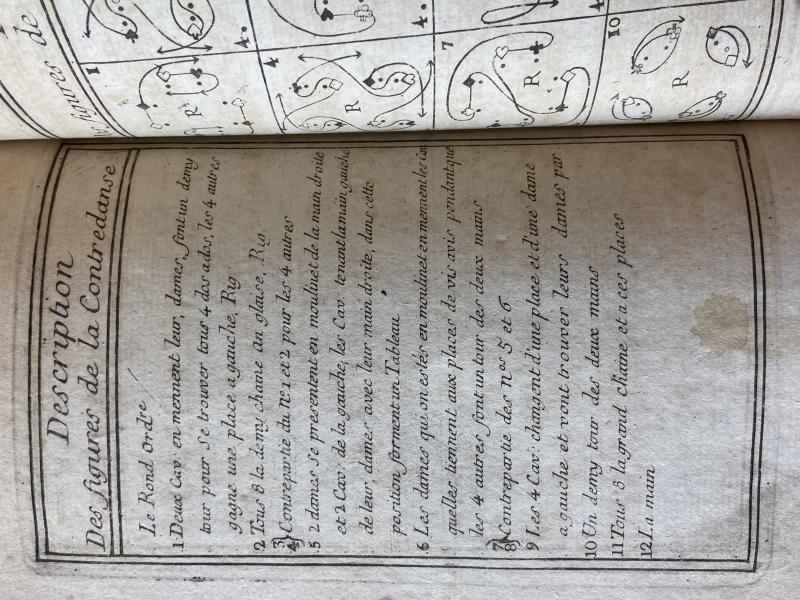 figures de
1
R
4.
R
4.
7
R
4
10
R
Description
Des figures de la Contredanse
Le Rond Ordre
1 Deux Cav: en mennent leur, dames, font un demy
tour pour Se trouver tous 4 dos a dos, les 4 autres
gagne une place a gauche, Rig
2 Tous 8 la demy chaine An glaise, Rig.
3
4 Contrepartie du N.º 1 et 2 pour les 4 autres
5 2 dames Se presentent en moulinet de la main droite
et 2 Cav: de la gauche, les Cav: tenant la main gauche
de leur, dames avec leur main droite, dans cette
position forment un Tableau
6 Les dames qui on estés en moulinet en mennent les
quelles tiennent aux places de vis avis pendant que
les 4 autres font un tour des deux mains
7
8 Contrepartie des nos 5 et 6
9 Les 4 Cav: changent d'une place et d'une dame
a gauche et vont trouver leurs dames par
10 Un demy tour des deux mains
11 Tous 8 la grand chaine et a ces places
12 La main